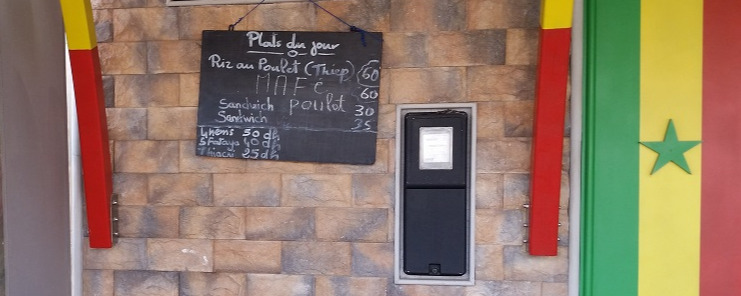 Plats du jour
Riz au Poulet (Thiep) 60
MAFÉ 60
Sandwich poulet 30
Sandwich 35
4 Nems 50 dh
5 Fataya 40 dh
Thiacri 25 dh